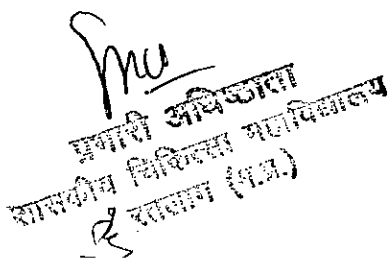 प्रभारी अधिष्ठाता
शासकीय चिकित्सा महाविद्यालय
रतलाम (म.प्र.)